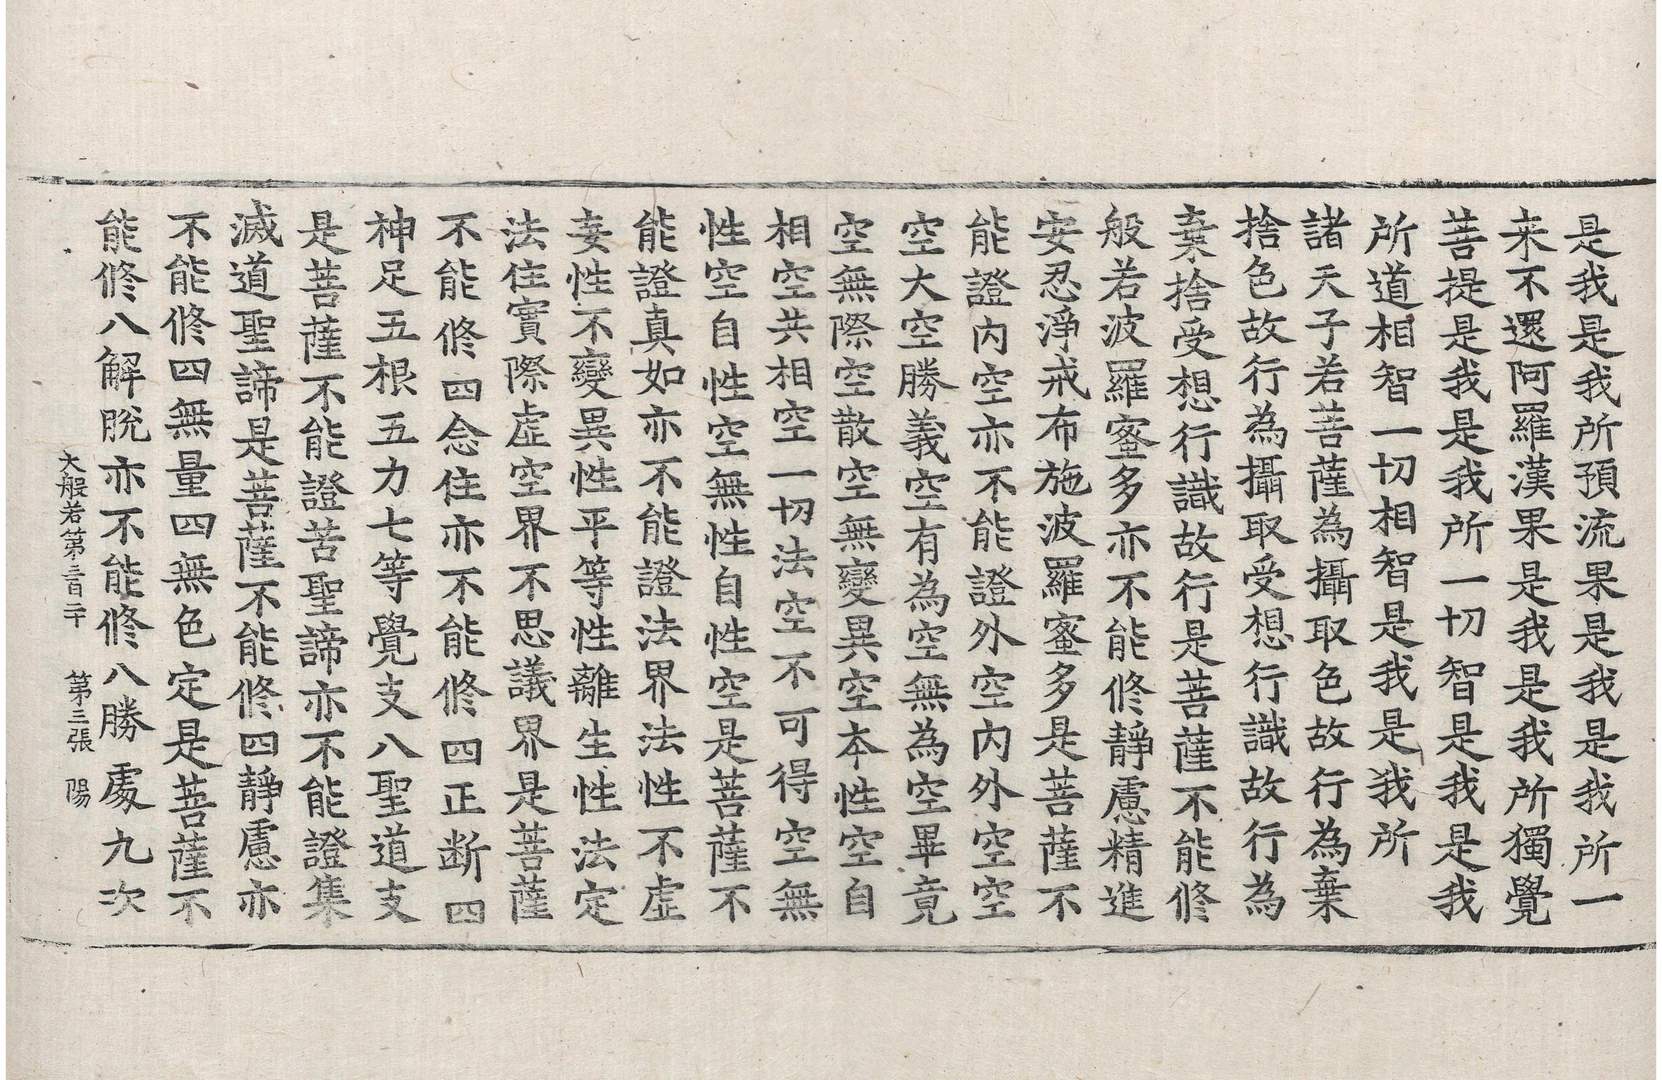 是我是我所預流果是我是我所一
来不還阿羅漢果是我是我所獨覺
菩提是我是我所一切智是我是我
所道相智一切相智是我是我所
諸天子若菩薩為攝取色故行為棄
捨色故行為攝取受想行識故行為
棄捨受想行識故行是菩薩不能修
般若波羅蜜多亦不能修靜慮精進
安忍淨戒布施波羅蜜多是菩薩不
能證內空亦不能證外空內外空空
空大空勝義空有為空無為空畢竟
空無際空散空無變異空本性空自
相空共相空一切法空不可得空無
性空自性空無性自性空是菩薩不
能證真如亦不能證法界法性不虛
妄性不變異性平等性離生性法定
法住實際虛空界不思議界是菩薩
不能修四念住亦不能修四正断四
神足五根五力七等覺支八聖道支
是菩薩不能證苦聖諦亦不能證集
滅道聖諦是菩薩不能修四靜慮亦
不能修四無量四無色定是菩薩不
能修八解脫亦不能修八勝處九次
大般若第三百二十 第三張 陽